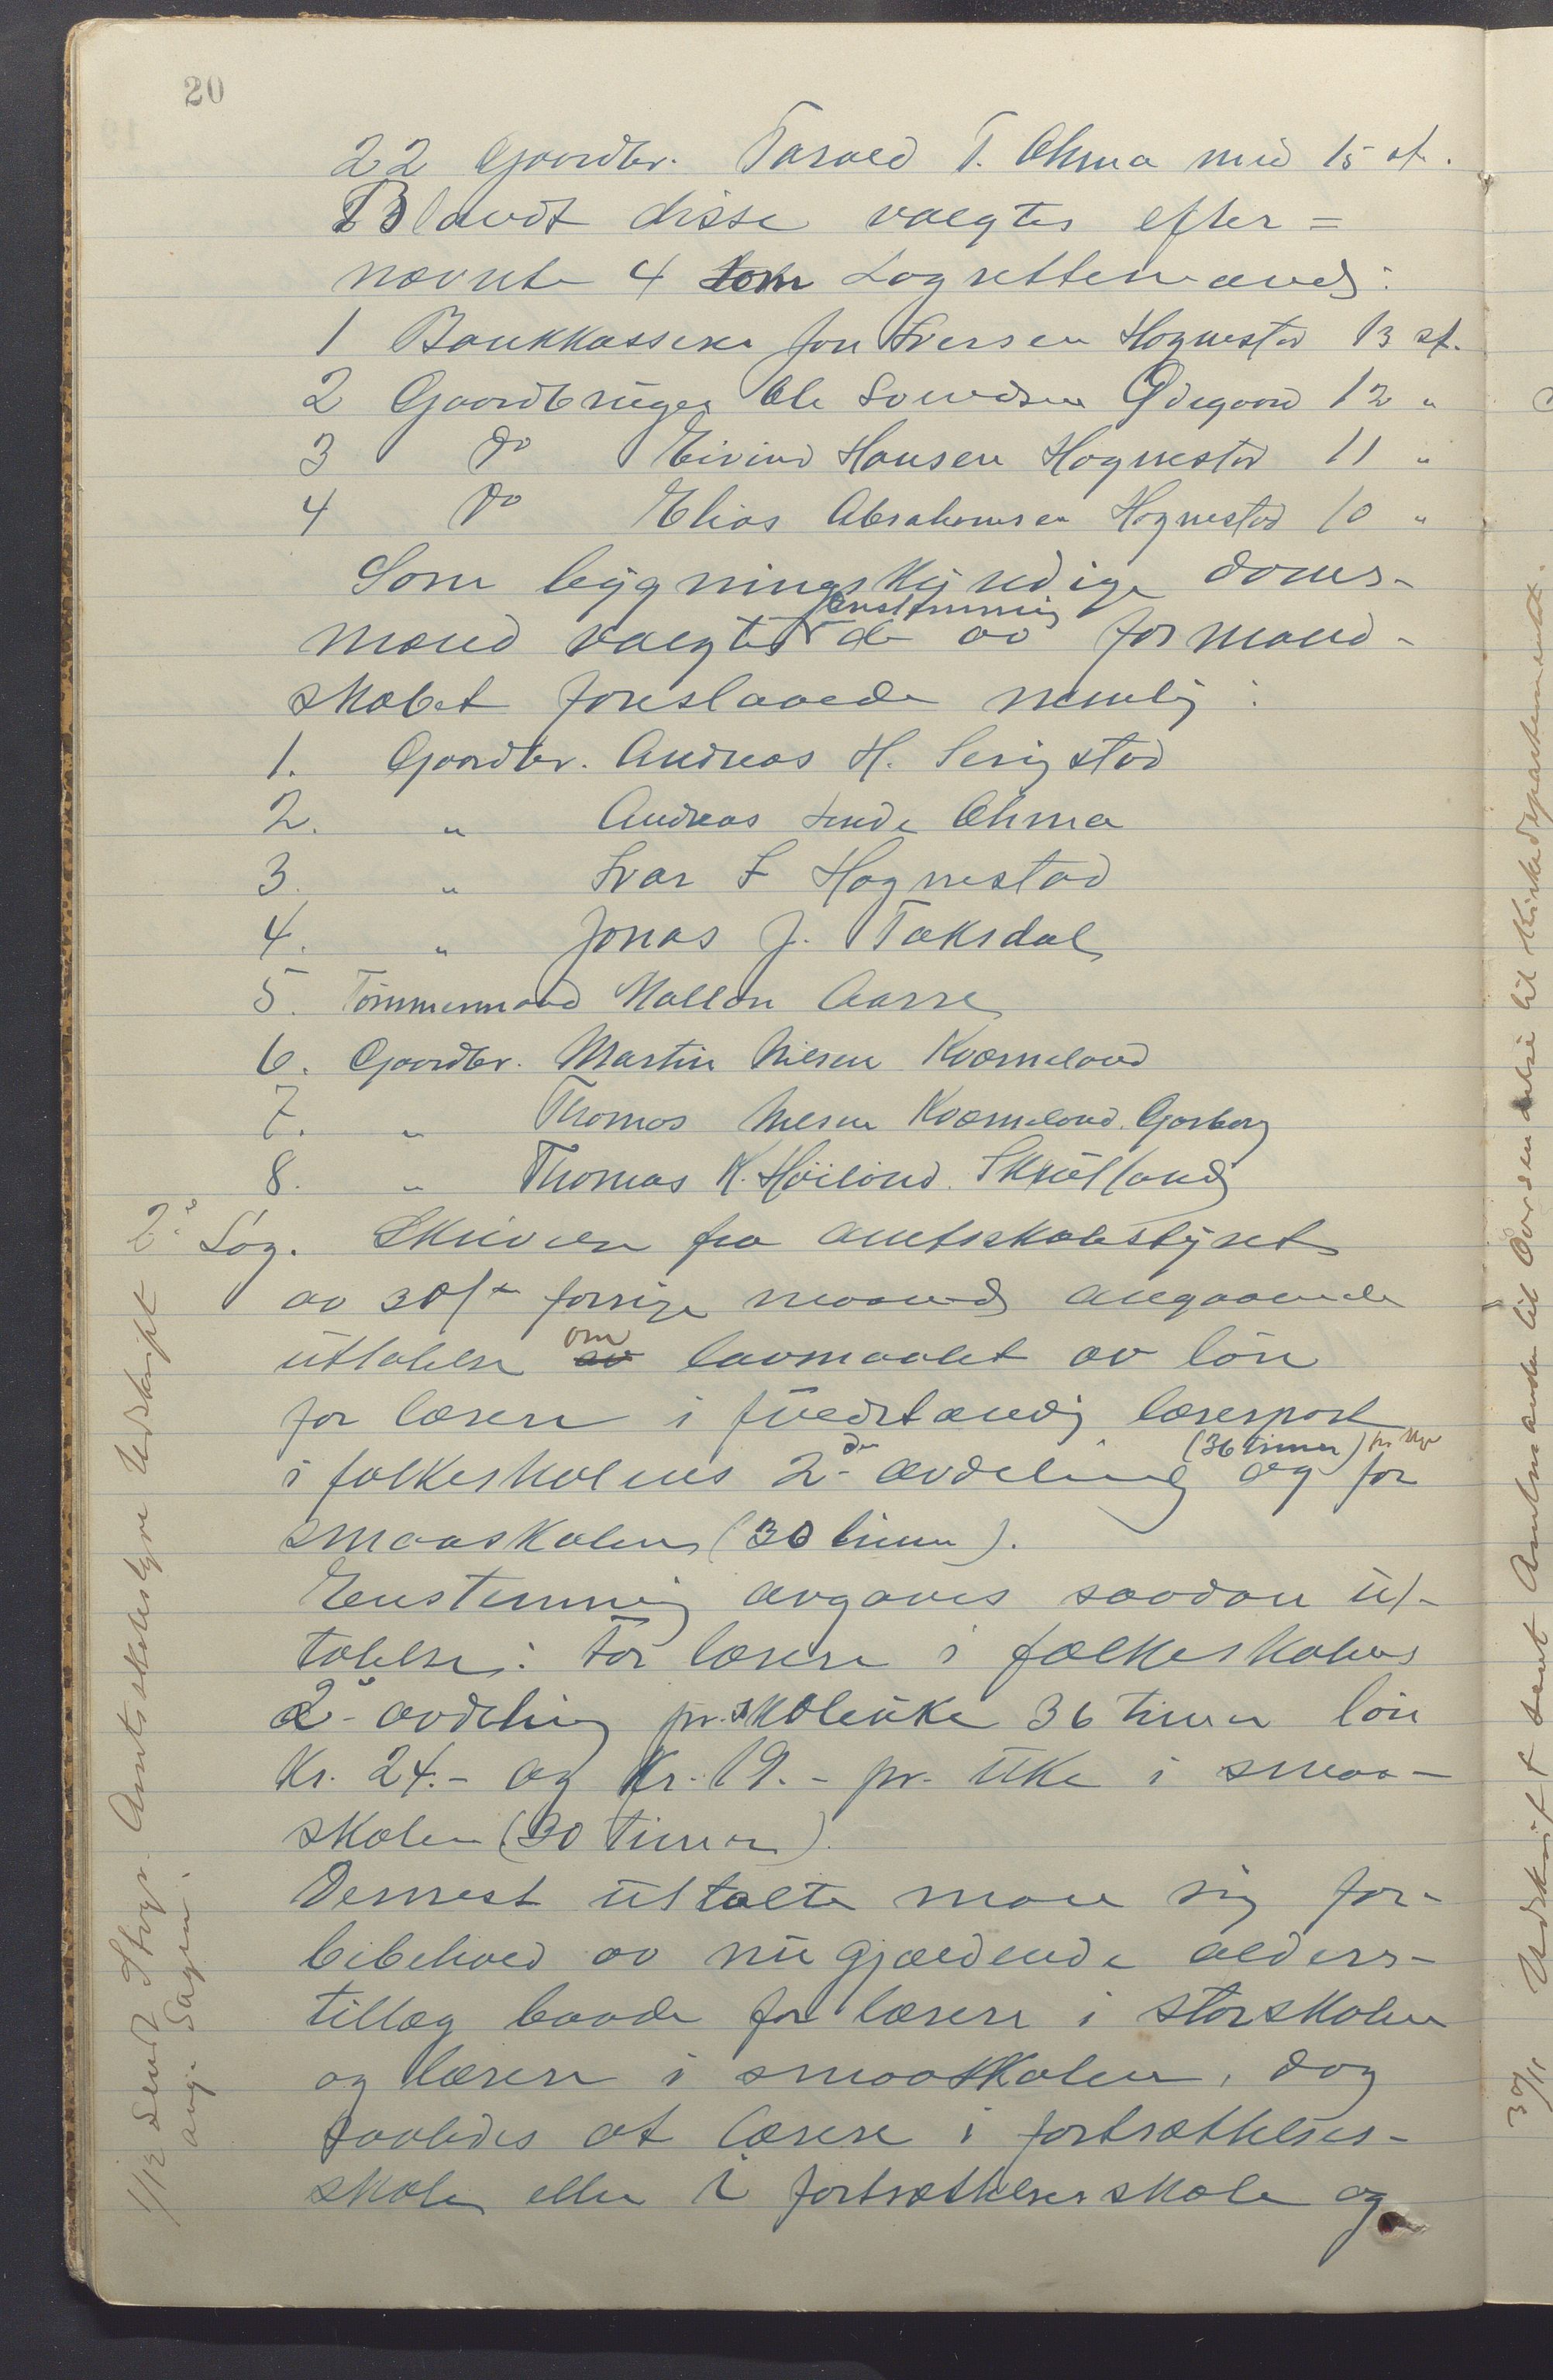 20
22 Gaardbr. Tarald T. Ohma med 15 st.
Blandt disse valgtes efter=
nævnte 4 som Lagrettemænd:
1 Bankkasserer Jon Iversen Hognestad 13 st.
2 Gaardbruger Ole Svendsen Ødegaard 12 "
3 Do Eivind Hansen Hognestad 11 "
4 Do Elias Abrahamsen Hognestad 10 "
Som bygningskyndige doms-
mænd valgtes enstemmig de av formand-
skabet foreslaaede nemlig:
1. Gaardbr. Andreas H. Serigstad
2. " Andreas Lende Ohma
3. " Ivar I Hognestad
4. " Jonas J. Taksdal
5. Tömmermand Aasre
6. Gaardbr. Martin Nilsen Kværneland
7. " Thomas Nilsen Kværneland. Garborg
8. " Thomas K. Höiland. Skrulland
2. Sag. Skrivelse fra amtsskolestyret
av 30/ forrige maaned angaaende
uttalelse om av lavmaalet av lön
for lærere i fuldstændig lærerpost
i folkeskolens 2den avdeling (36 timer) pr. Uge og for
smaaskolen (30 timer).
Enstemmig avgaves saadan ut-
talelse: For lærere i folkeskolens
2. avdeling pr. skoleuke 36 timer lön
Kr. 24.- og Kr. 19.- pr. uke i smaa-
skolen (30 timer).
Dernest uttalte man sig for-
bibehold av nu gjældende alders-
tillæg baade for lærere i storskolen
og lærere i smaaskolen, dog
saaledes at lærere i fortsættelses-
skole eller i fortsættelsesskole og
1/12 Sendt Amtsskolestyre Udskrift
ang. Sagen.
30/11 Udskrift sendt Amtmanden til Oversendelse til Kirkedepartementet.